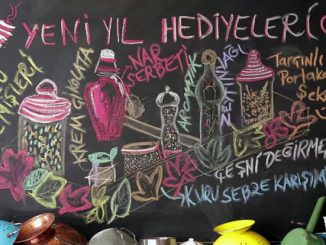 YENİ YIL HEDİYELERİ
KREM ÇİKOLATA
NAR
ŞERBETİ
AROMATİK
ZEYTİNYAĞI
Tarçınlı
Portakal
Şeke
ÇEŞNİ DEĞİRME
KURU SEBZE KARIŞIM